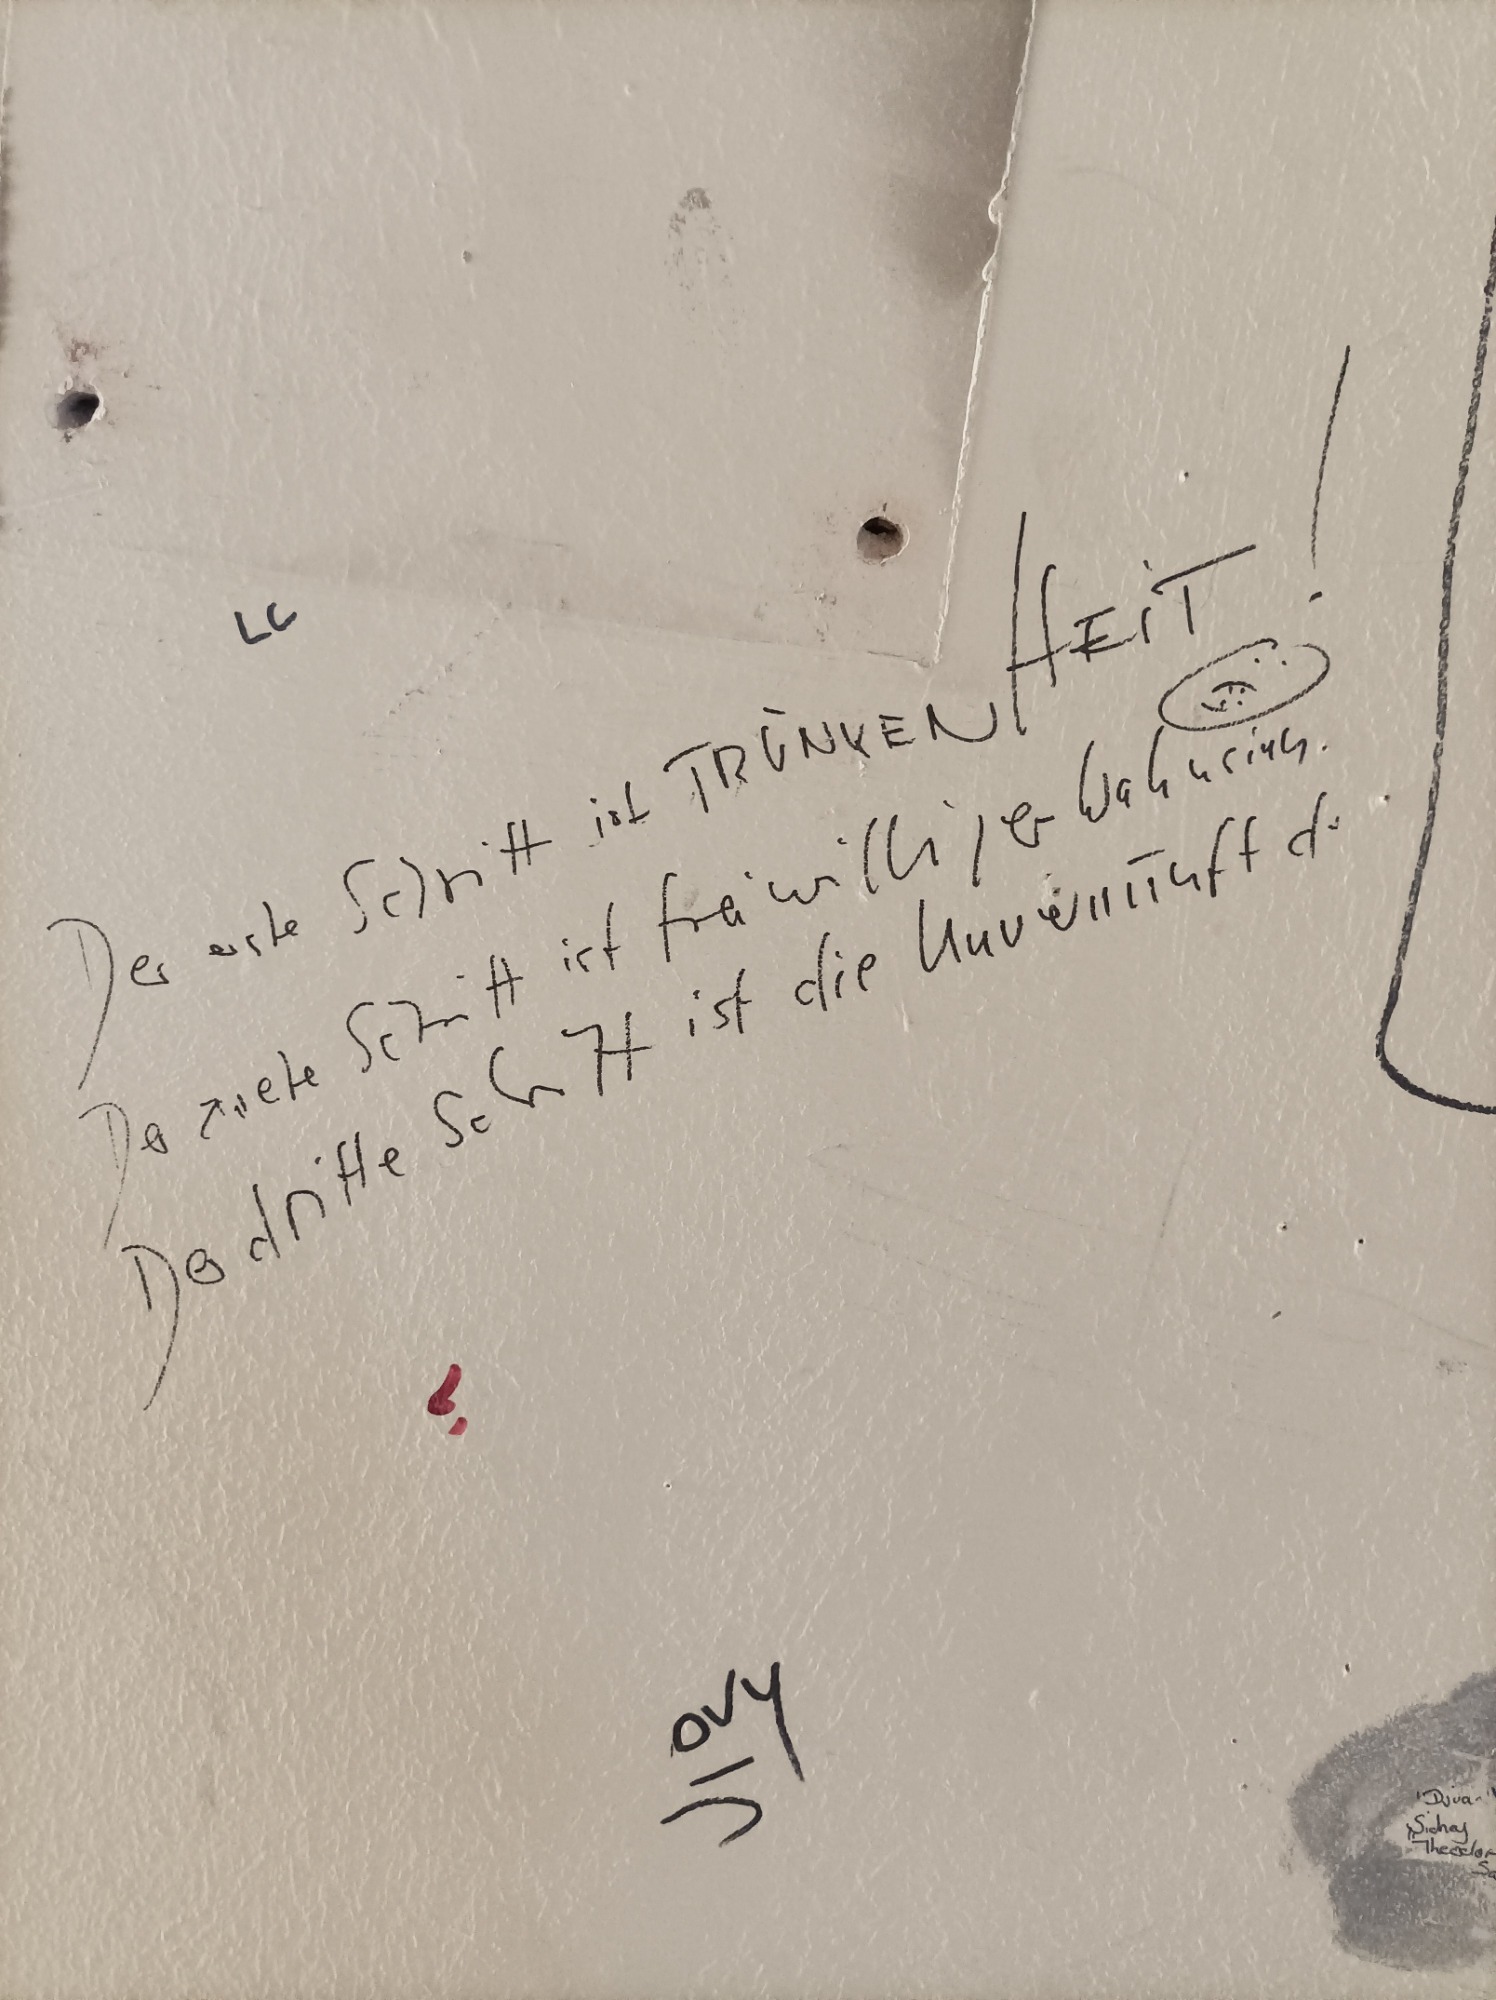 LC
Der erste Schritt ist TRUNKENHEIT!
Der zweite Schritt ist freiwilliger Wahnsinn.
Der dritte Schritt ist die Unvernunft
Jovy
"Divan"
Sidney
Theodor